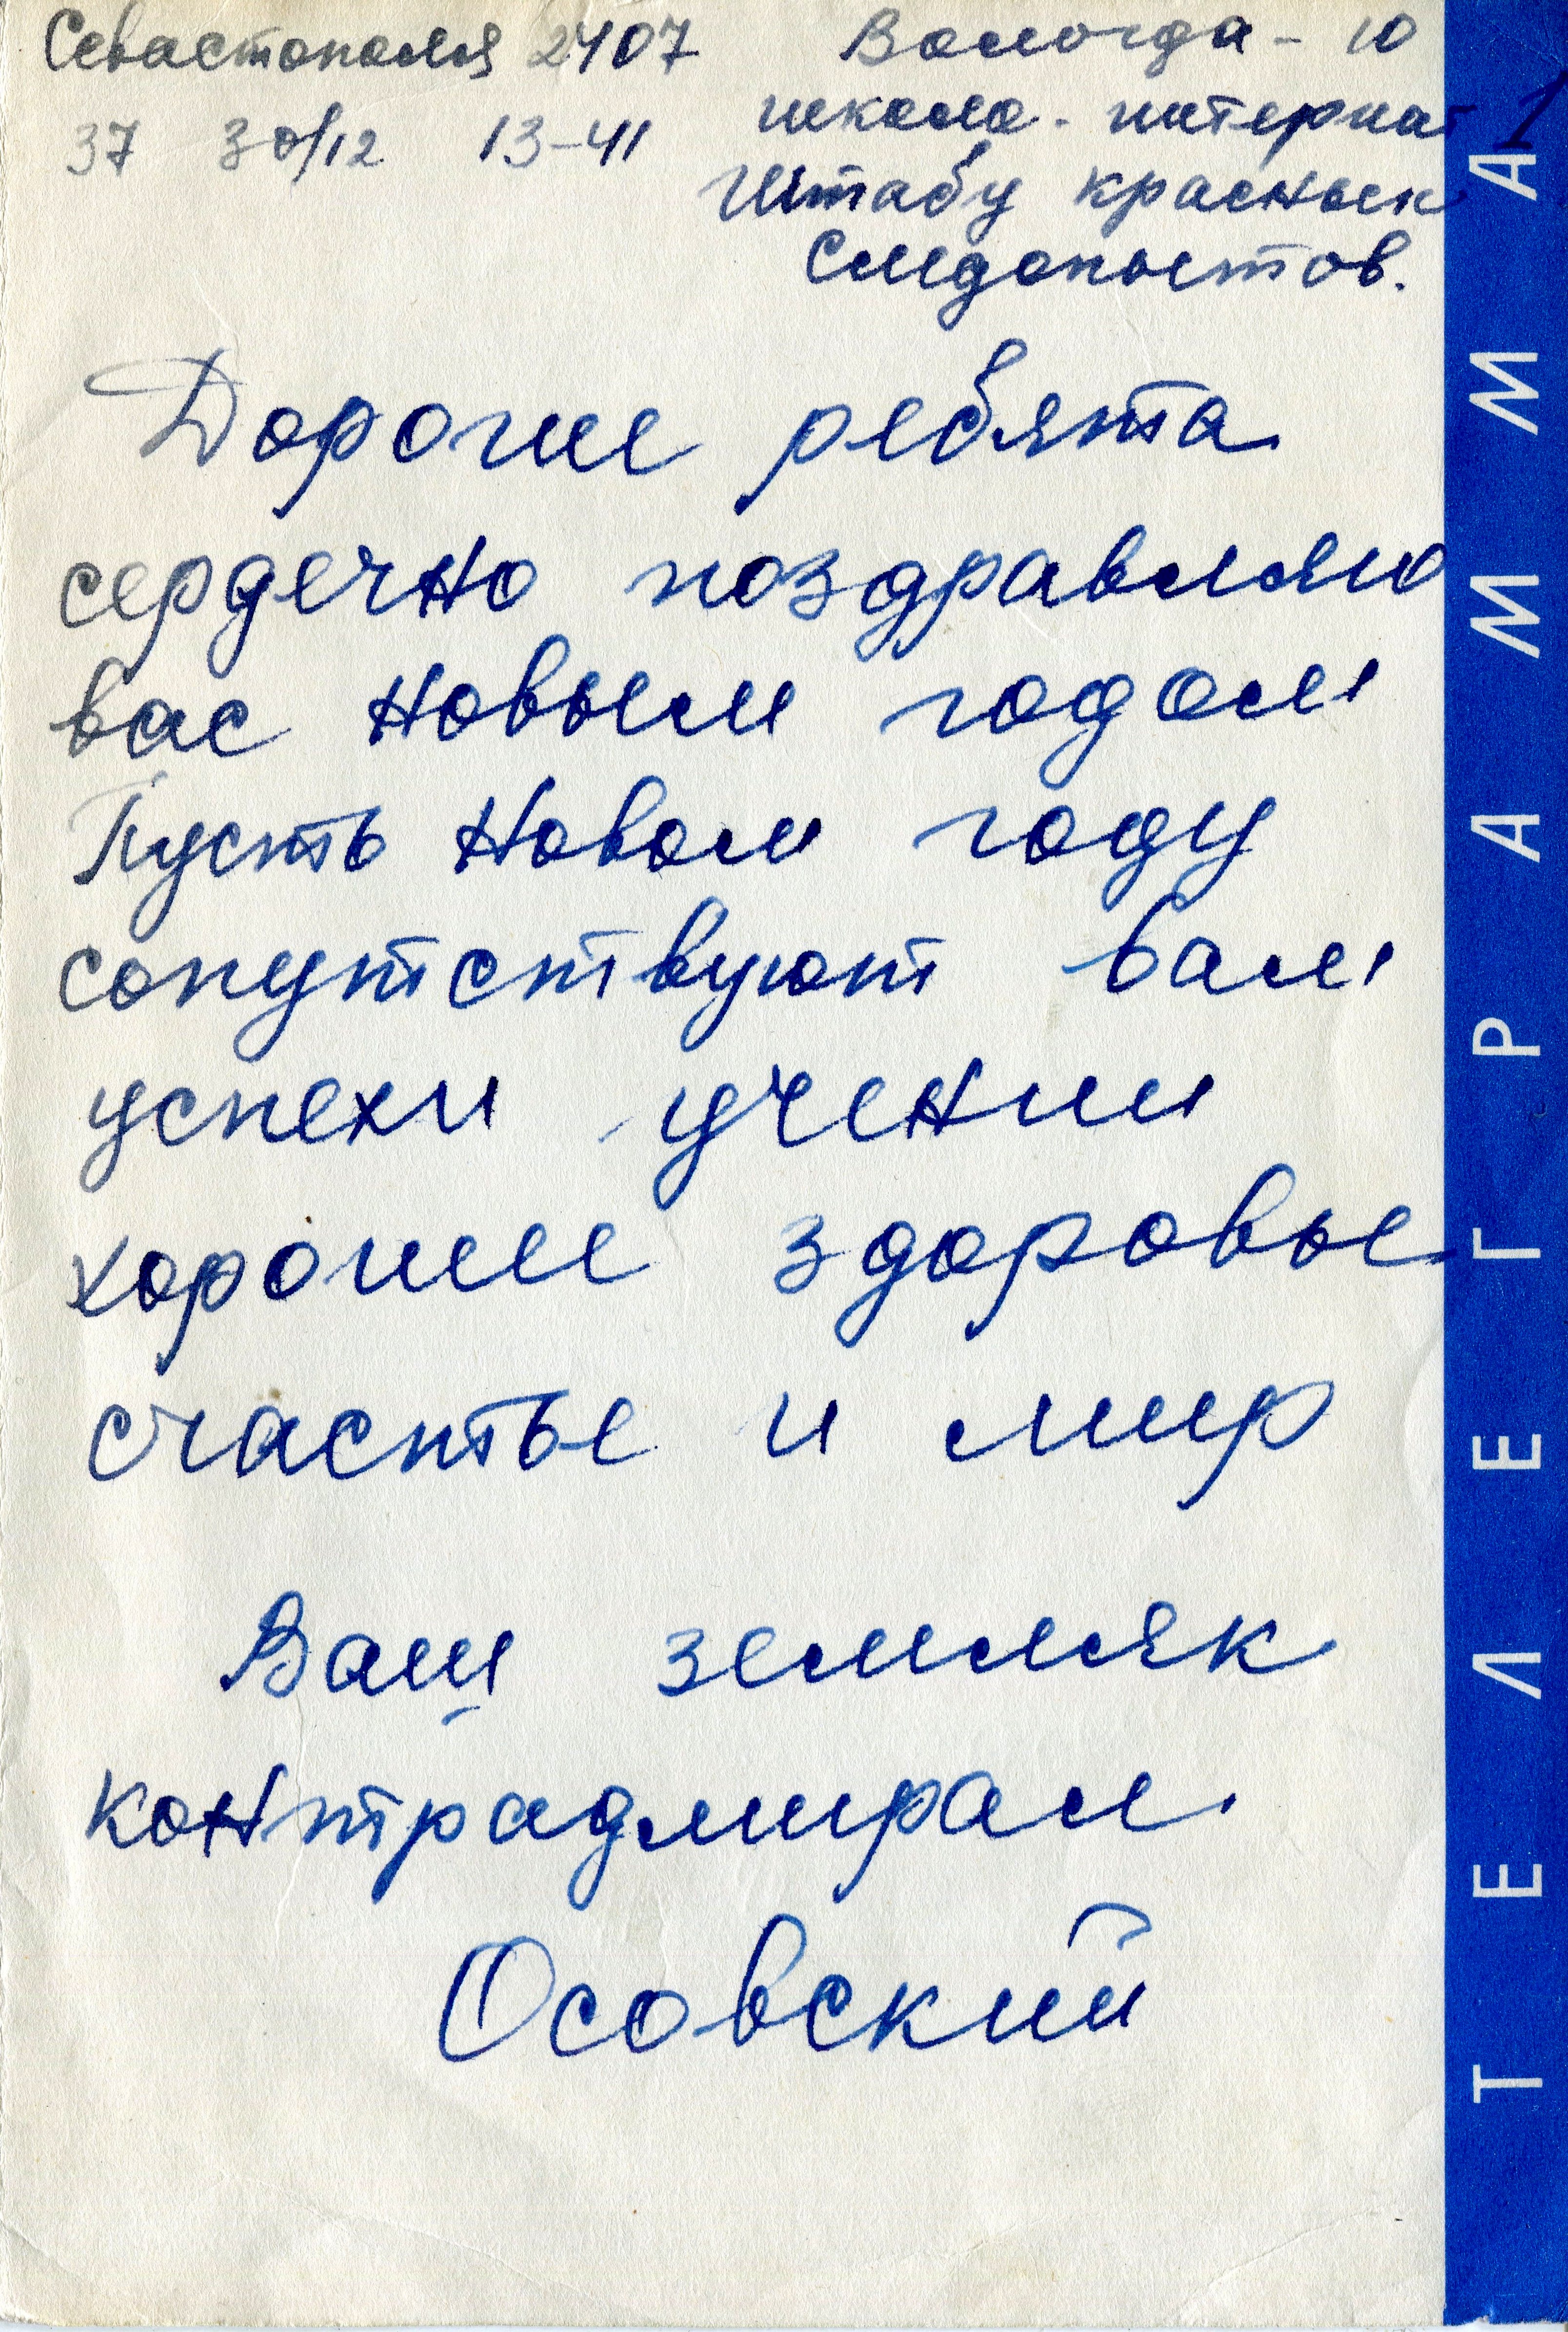 Севастополя 2407 Вологда - 10
37 30/12 13-41 школа - интернат 1
Штабу красных
Следопытов.
Дорогие ребята
сердечно поздравляю
вас новым годом
Пусть новом году
сопутствуют вам
успехи учении
хорошее здоровье
счастье и мир
Ваш земляк
контрадмирал
Осовский
ТЕЛЕГРАММА